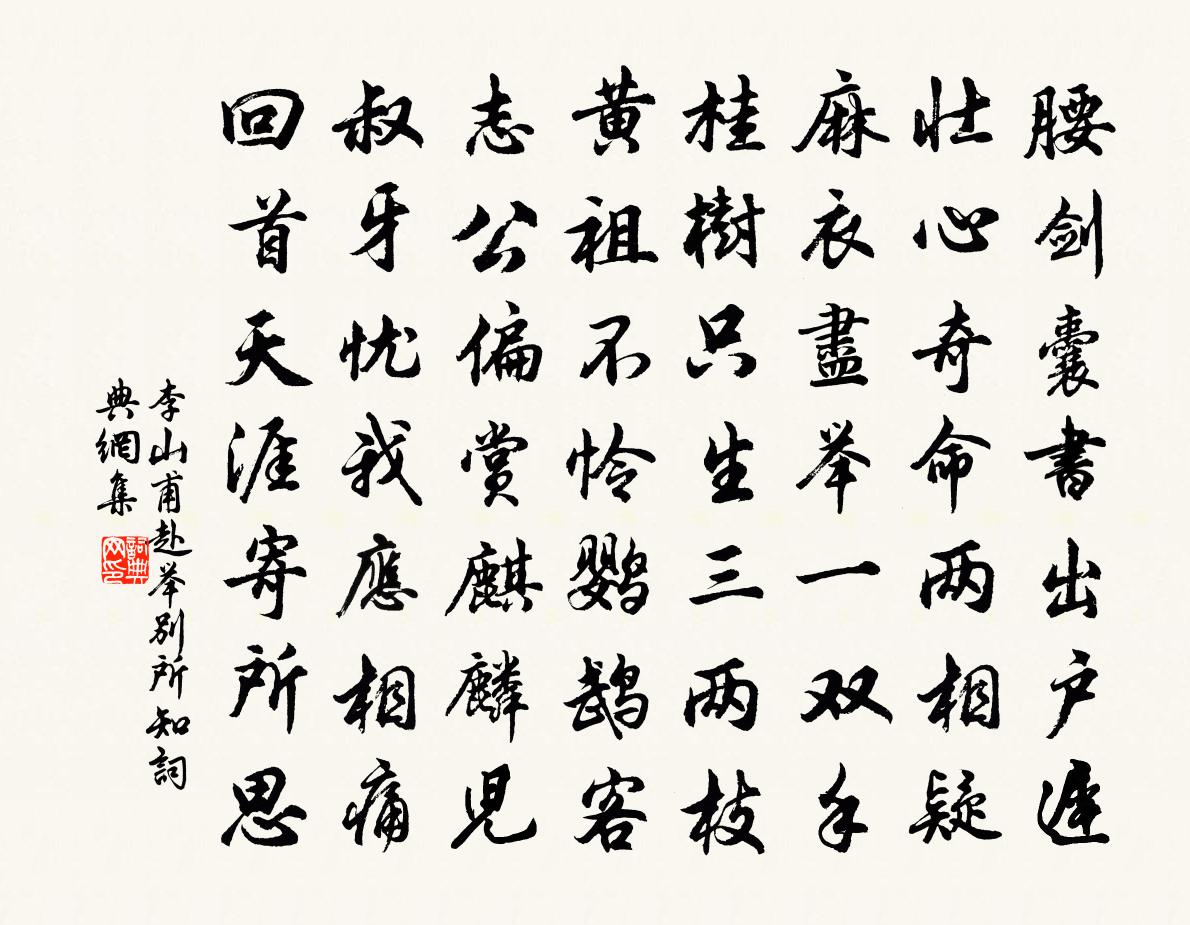 腰剑囊書出户遲
壮心奇命两相疑
麻衣盡举一双手
桂樹只生三两枝
黄祖不怜鹦鹉客
志公偏赏麒麟児
叔牙忧我應相痛
回首天涯寄所思
李山甫赴举别所知詞
典網集
詞典
网印